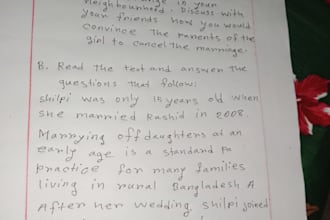 in your
neighbourhood. Discuss with
your friends how you would
convince the parents of the
girl to cancel the marriage.
B. Read the text and answer the
questions that follow:
Shilpi was only 15 years old when
she married Rashid in 2008.
Marrying off daughters at an
early age is a standard Fa
practice for many families
living in rural Bangladesh A
After her wedding, Shilpi joined